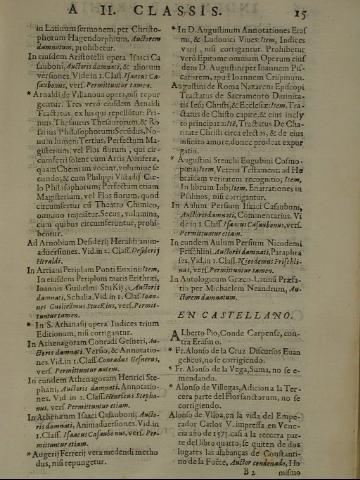 A II. CLASSIS. 15
in Latinum sermonem, per Christo-
phorum Hagendorphium, Auctorem
damnatum, prohibetur.
In eiusdem Aristotelis opera Isaaci Ca
sauboni, auctoris damnati, & aliorum
versiones. Vid. in 1. Class. Isaacus Ca-
saubonus, vers. Permittuntur tamen.
* Arnaldi de Villanova opera, nisi repur
gentur. Tres verò eiusdem Arnaldi
Tractatus, ex his qui repellitur: Pri-
mus, Thesaurus Thesaurorum, & Ro
sarius Philosophorum: Secūdus, No-
vum lumen: Tertius, Perfectum Ma-
gisterium, vel Flos florum, qui cir-
cumferri solent cum Artis Auriferæ,
quam Chemiam vocant, volumine se-
cundo, & cum Philippi Vlstadij Cæ-
lo Philosophorum; Perfectum etiam
Magisterium, vel Flos florum, quod
circumfertur in Theatro Chimico,
omnino rejicitur. Secus, volumina,
cum quibus circumferuntur, prohi-
bentur.
Ad Arnobium Desiderij Heraldi anim-
adversiones. Vid. in 1. Class. Desiderij
Heraldi.
In Arriani Periplum Ponti Euxini: Item,
in eiusdem Periplum maris Erithræi,
Ioannis Guilielmi Stukij, Auctoris
damnati, Scholia. Vid. in 1. Clas. Ioan-
nes Guilielmus Stuckius, vers. Permit-
tuntur tamen.
* In S. Athanasij opera Indices trium
Editionum, nisi corrigantur.
In Athenagoram Conradi Gesneri, Au-
ctoris damnati, Versio, & Annotatio-
nes. Vid. in 1. Class. Conradus Gesnerus,
vers. Permittuntur autem.
In eundem Athenagoram Henrici Ste-
phani, Auctoris damnati, Annotatio-
nes. Vid. in 1. Class. Henricus Stepha-
nus, vers. Permittuntur etiam.
In Athenæum Isaaci Casauboni, Aucto-
ris damnati, Animadversiones. Vid. in
1. Class. Isaacus Casaubonus, vers. Per-
mittuntur etiam.
* Augerij Ferrerij vera medendi metho
dus, nisi repurgetur.
* In D. Augustinum Annotationes Eras
mi, & Ludovici Vives: Item, Indices
varij, nisi corrigantur. Prohibetur
verò Epitome omnium Operum eius
dem D. Augustini per Ioannem Pis-
catorem, apud Ioannem Crispinum.
Augustini de Roma Nazareni Episcopi
Tractatus de Sacramento Divinita-
tis Iesu Christi, & Ecclesiæ: Item, Tra-
ctatus de Christo capite, & eius incly
to principatu: Itē, Tractatus De Cha-
ritate Christi circa electos, & de eius
infinito amore, donec prodeat expur
gatus.
* Augustini Steuchi Eugubini Cosmo-
pœia; Item, Veteris Testamenti ad He
braicam veritatem recognitio; Item,
In librum Iob; Item, Enarrationes in
Psalmos, nisi corrigantur.
In Aulum Persium Isaaci Casauboni,
Auctoris damnati, Commentarius. Vi
de in 1. Class. Isaacus Casaubonus, vers.
Permittuntur etiam.
In eundem Aulum Persium Nicodemi
Frischlini, Auctoris damnati, Paraphra
ses. Vid. in 1. Class. Nicodemus Frischli-
nus, vers. Permittuntur tamen.
In Autologicum Græco-Latinū Præfa-
tio per Michaelem Neandrum, Au-
ctorem damnatum.
EN CASTELLANO.
Alberto Pio, Conde Carpense, con-
tra Erasmo.
* Fr. Alonso de la Cruz Discursos Euan
gelicos, no se corrigiendo.
* Fr. Alonso de la Vega, Suma, no se e-
mendando.
* Alonso de Villegas, Adicion a la Ter-
cera parte del Flos sanctorum, no se
corrigiendo.
Alonso de Vlloa, en la vida del Empe-
rador Carlos V. impressa en Vene-
cia año de 1573. casi a la tercera par-
te del libro quarto, se quiten de dos
lugares las alabanças de Constanti-
no de la Fuēte, Auctor condenado, Ho
B 2 mismo